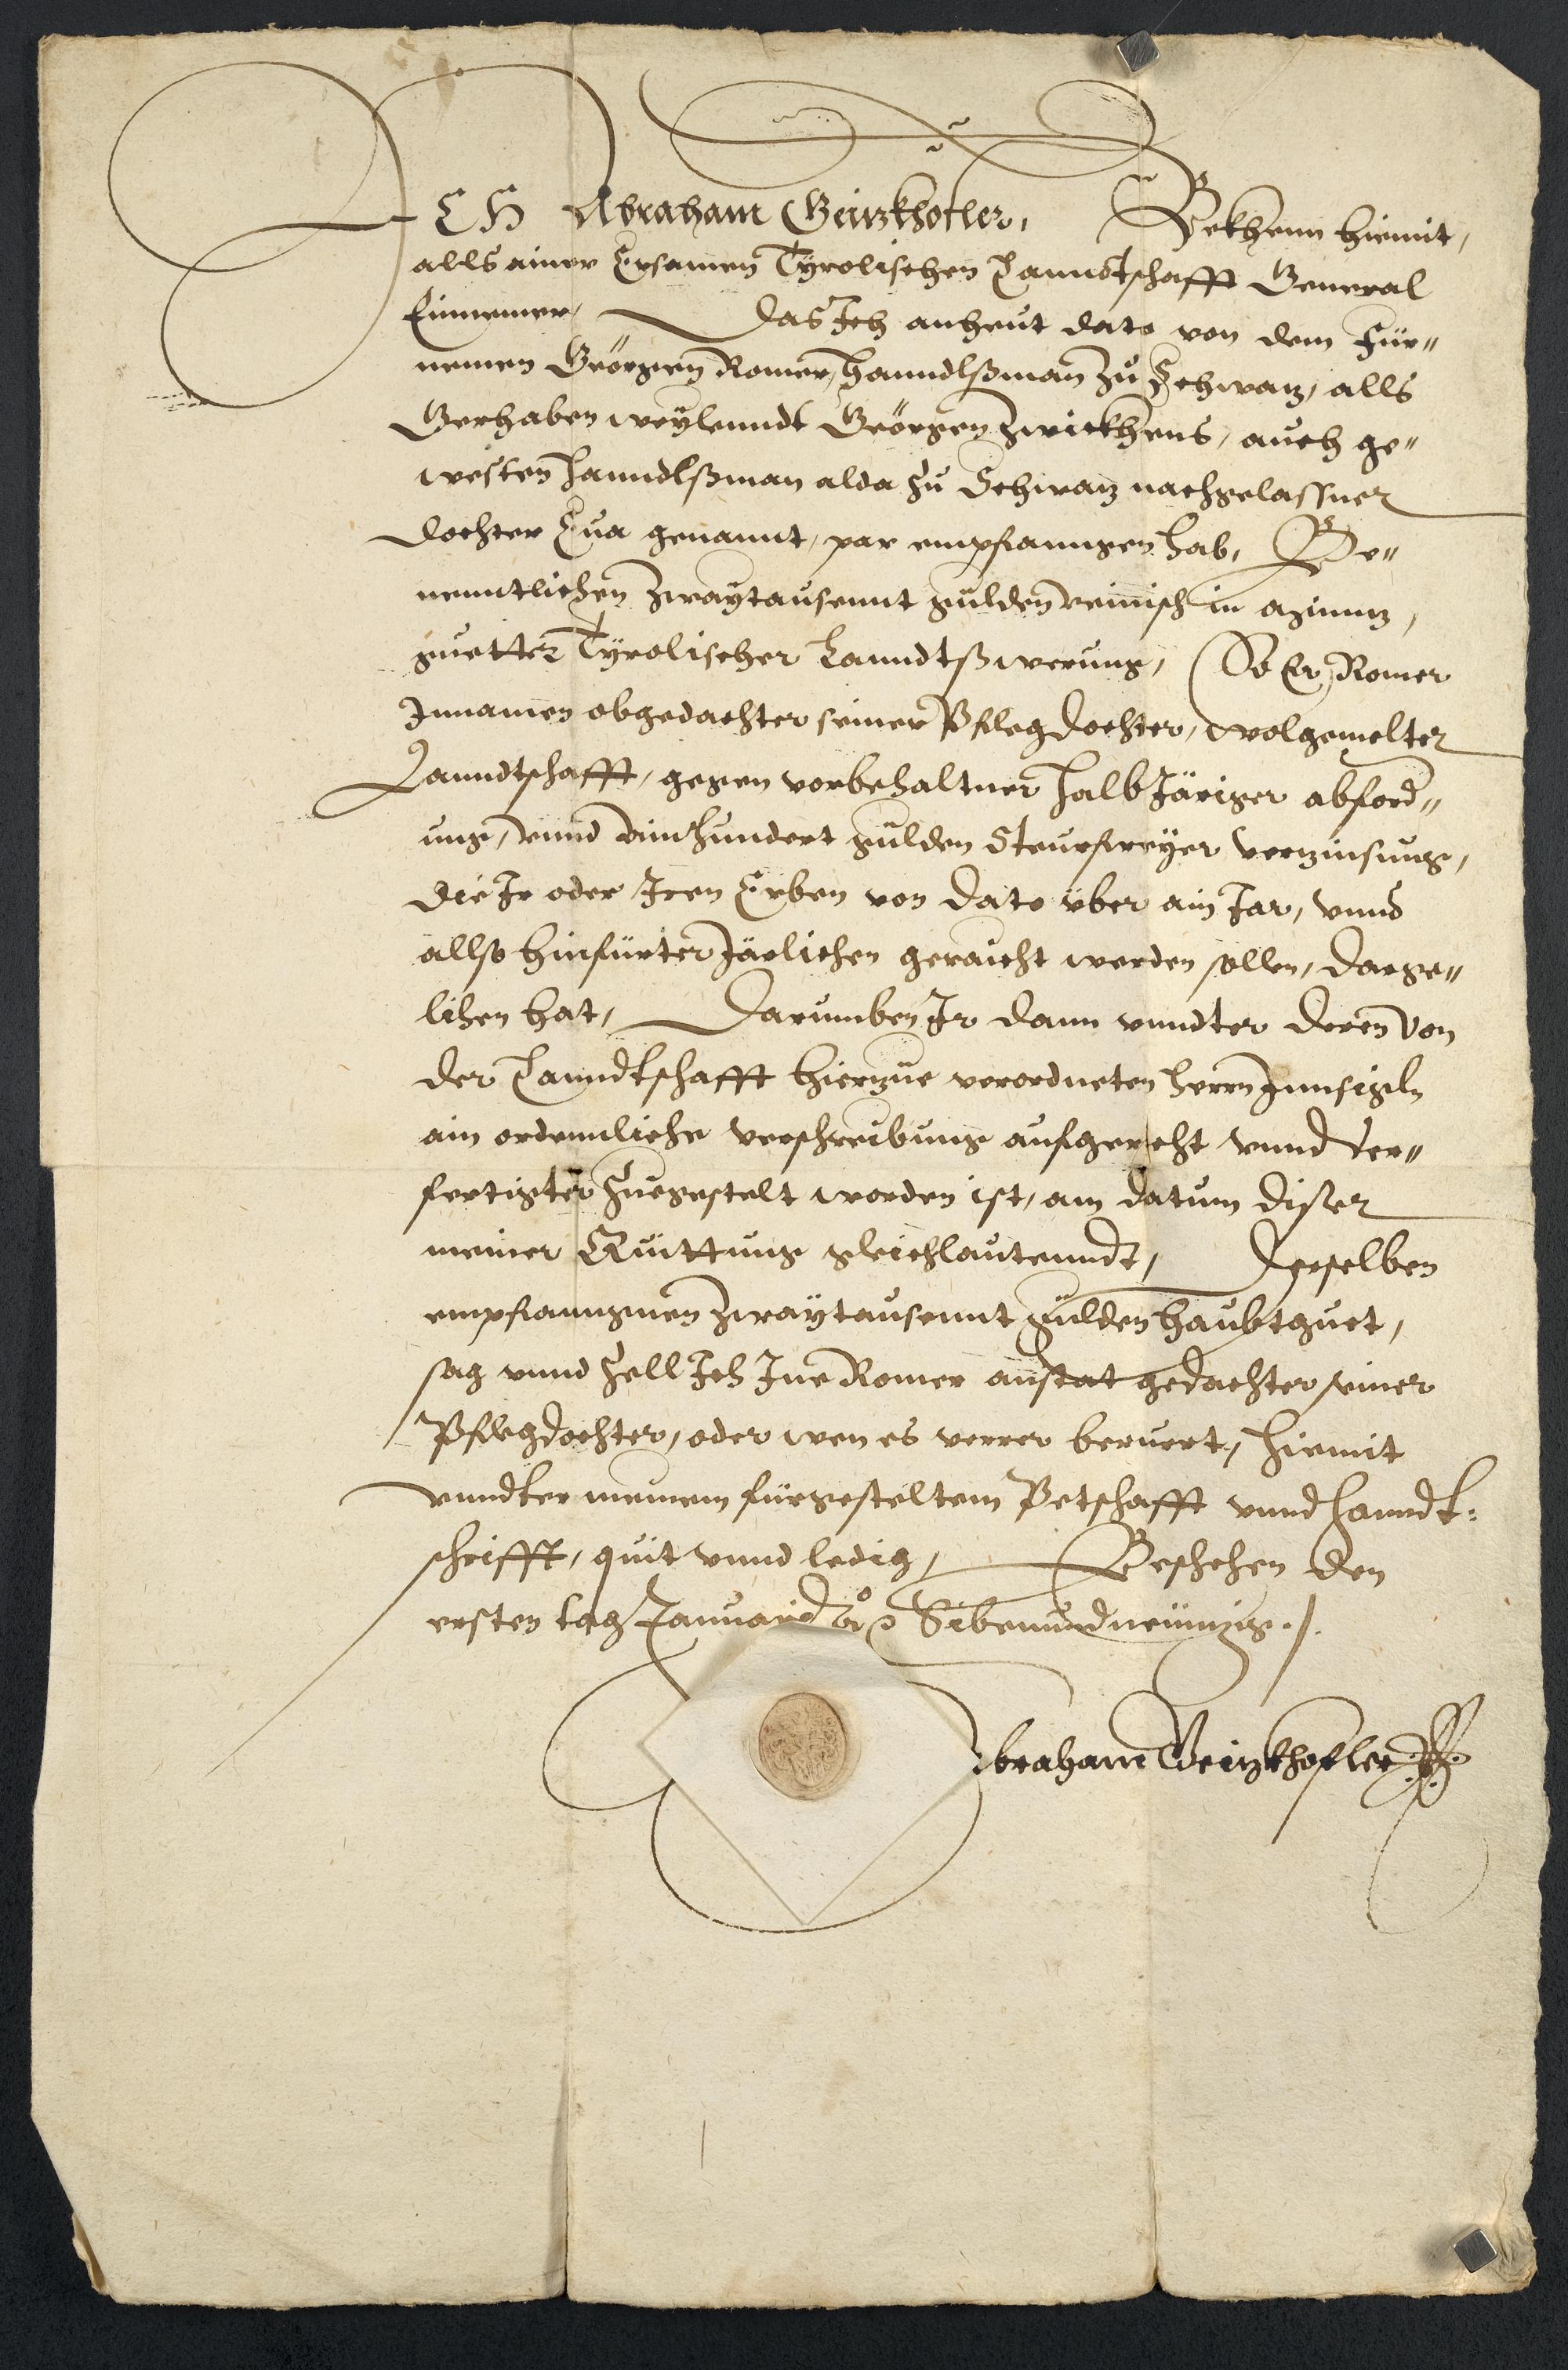 ICH Abraham Geitzkhofler, Bekhenn hiemit,
alls ainer Ersamen Tyrolischen Lanndtschafft General
Einnemer, Das Ich anheut dato von dem Für„
nemen Geörgen Romer, Hanndlßman zu Schwaz, alls
Gerhaben weylenndt Geörgen Zwickhens, auch ge„
westen Hanndlßman alda zu Schwaz nachgelassner
dochter Eua genannt, par empfanngen hab, Be„
nenntlichen Zwaytausennt gulden reinisch in
guetter Tyrolischer Lanndtßwerung, So Er Romer
Innamen obgedachter seiner Pflegdochter, wolgemelter
Lanndtschafft, gegen vorbehaltner halb Järiger abford„
ung, vnnd ainhundert gulden Steurfreyer verzinsung,
die Ir oder Iren Erben von dato über ain Jar, vnnd
allso hinfürter Järlichen geraicht werden sollen, darge„
lihen hat, Darumben Ir dann vnndter deren von
der Lanndtschafft hierzue verordneten herrn Innsigln
ain ordennliche verschreibung aufgericht vnnd ver„
fertigter zuegestelt worden ist, am datum diser
meiner Quittung gleichlautenndt, Derselben
empfanngnen Zwaytausennt gulden haubtguet,
sag vnnd Zell Ich Ine Romer anstat gedachter seiner
Pflegdochter, oder wen es verrer beruert, hiemit
vnndter meinem fürgesteltem Petschafft vnnd Hanndt„
schrifft, quit vnnd ledig, Beschehen den
ersten tag Januarij Aº Sibenundneünzig ./.
braham Geitzkhofler